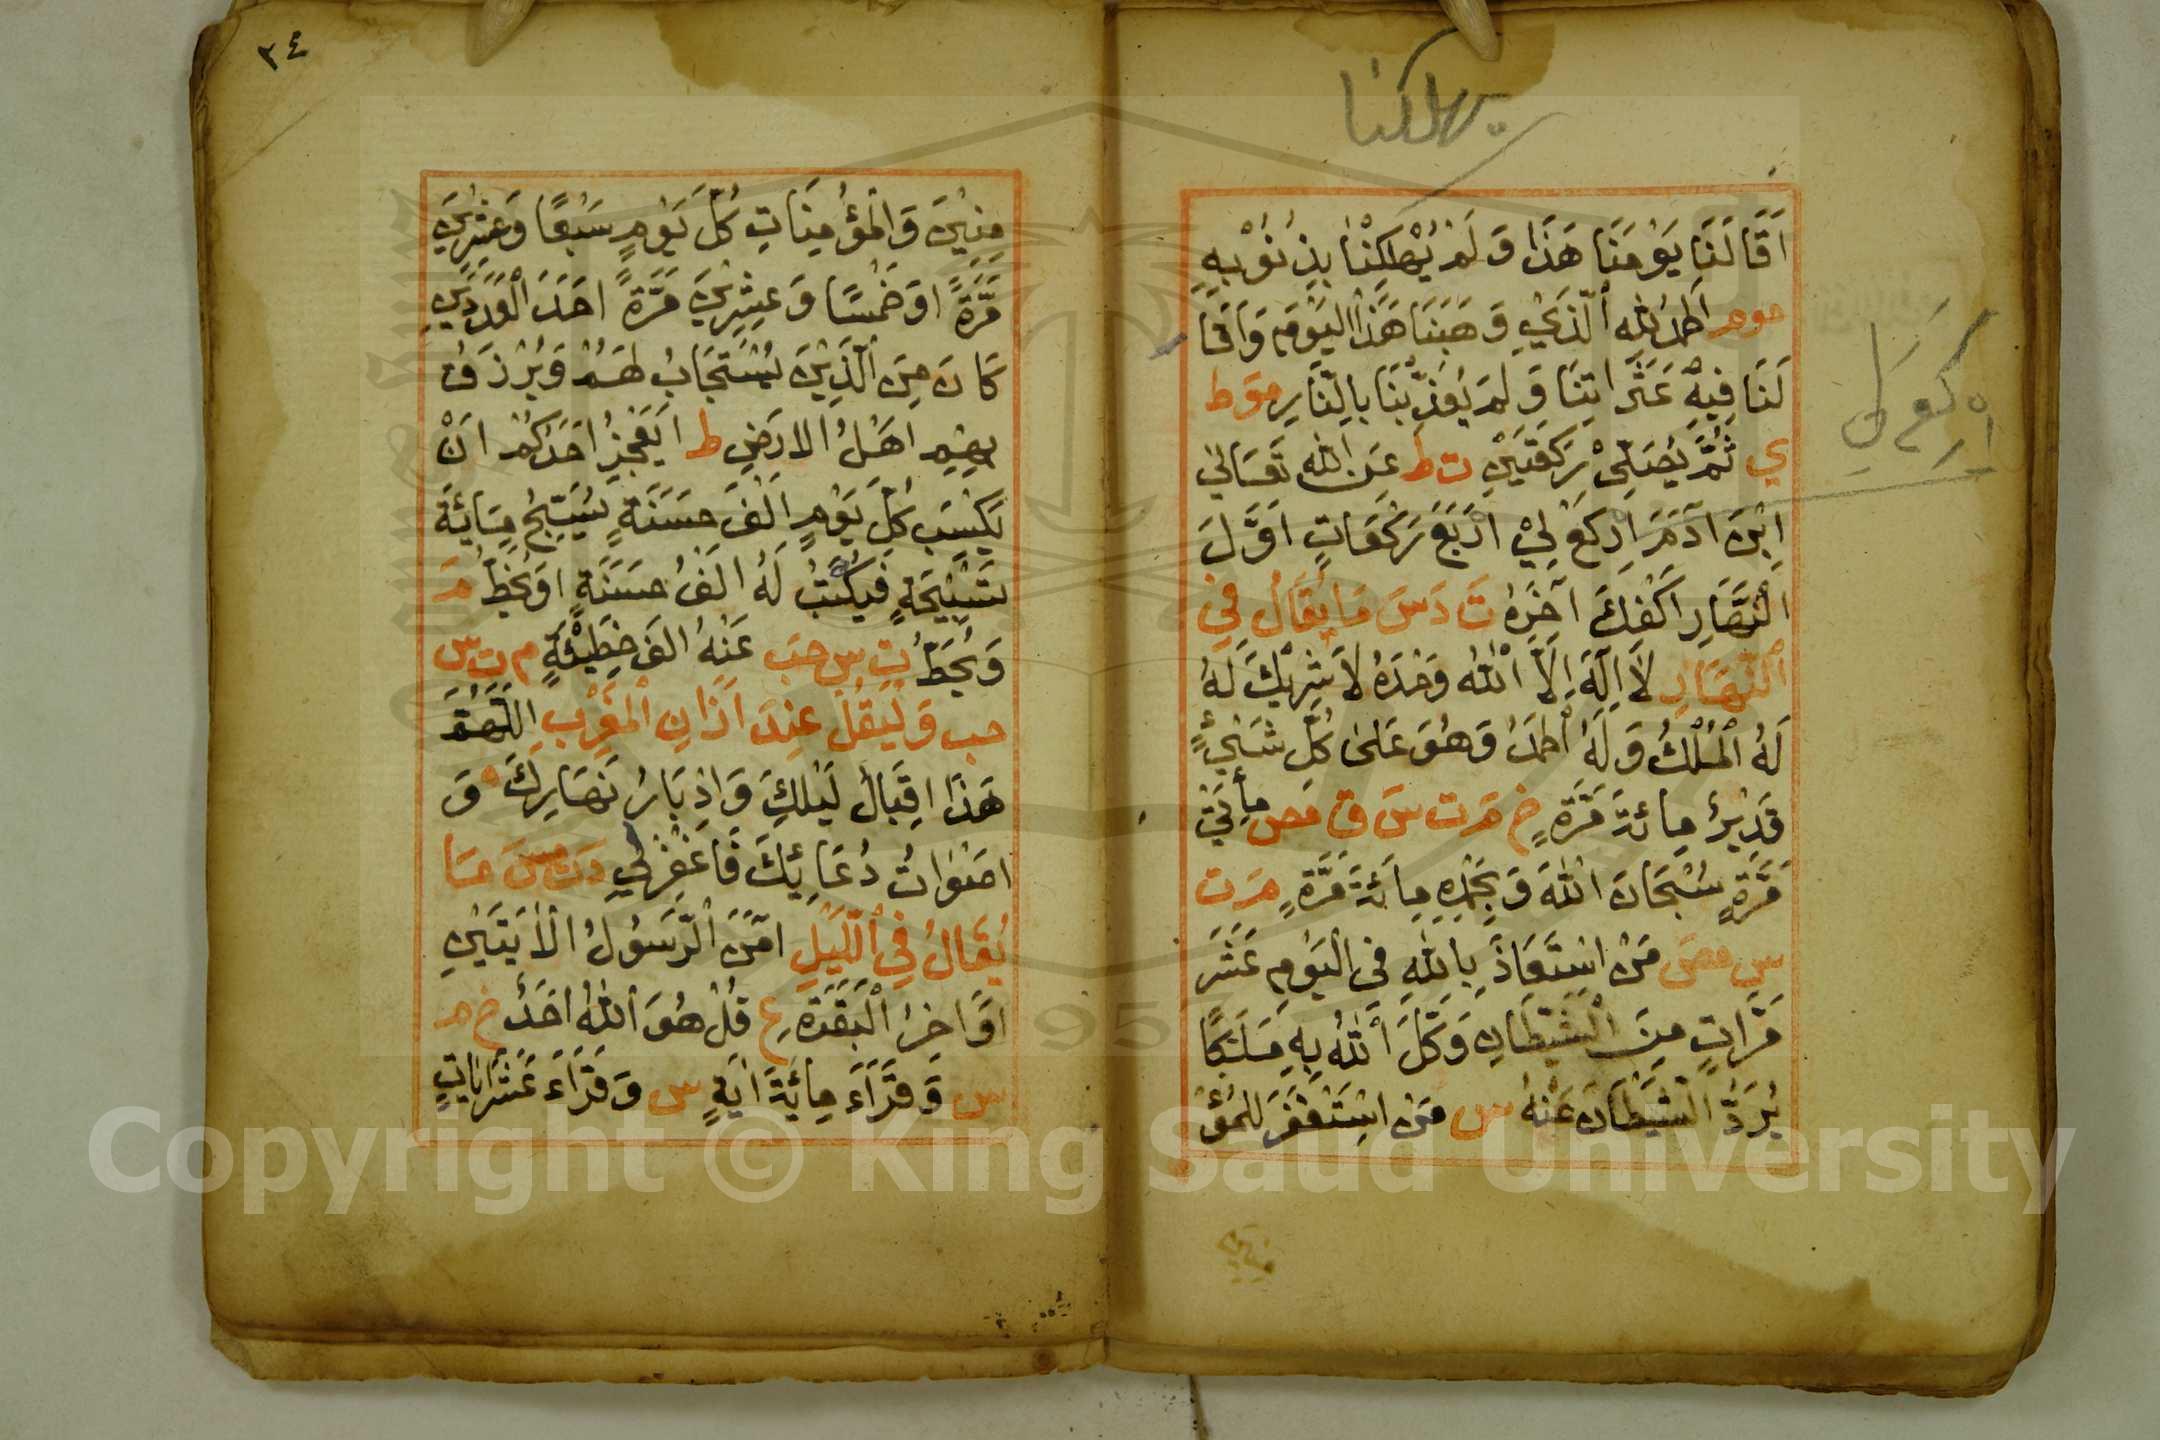 يهلكنا
اَقَالَنَا يَوْمَنَا هَذَا وَلَمْ يُهْلِكْنَا بِذُنُوْبِهِ
موم اَلحمدُ للهِ الَّذِيْ وَهَبَنَا هَذَا اليَوْمَ وَاَقَا
لَنَا فِيْهِ عَثَراتِنَا وَلَمْ يُعَذِّبْنَا بِالنَّارِ مو ط
ي ثُمَّ يُصَلِّيْ رَكْعَتَيْنِ ت ط عَنِ اللهِ تَعَالٰى
اِبْنَ اٰدَمَ اِرْكَعْ لِيْ اَرْبَعَ رَكَعَاتٍ اَوَّلَ
النَّهَارِ اَكْفِكَ اٰخِرَهُ ت د س مَا يُقَالُ فِي
النَّهَارِ لَا اِلٰهَ اِلَّا اللهُ وَحْدَهُ لَا شَرِيْكَ لَهُ
لَهُ الْمُلْكُ وَلَهُ الحمدُ وَهُوَ عَلىٰ كُلِّ شَيْءٍ
قَدِيْرٌ مِائةَ مَرَّةٍ خ م ت س ق مص مِأتَيْ
مَرَّةٍ سُبْحَانَ اللهِ وَبِحَمْدِهِ مِائَةَ مَرَّةٍ م ت
س مص مَنْ اسْتَعَاذَ بِاللهِ فِي الْيَوْمِ عَشَرَ
مَرَّاتٍ مِنَ الشَّيْطَانِ وَكَّلَ اللهُ بِهِ مَلَكًا
يَرُدُّ الشَّيْطَانَ عَنْهُ ص مَنْ اسْتَغْفَرَ لِلمُؤْ
اركع لي
منين
٣٤
مِنِيْنَ وَالْمُؤْمِنَاتِ كُلَّ يَوْمٍ سَبْعًا وَعِشْرِيْنَ
مَرَّةً اوْ خَمْسًا وَعِشْرِيْنَ مَرَّةً احَدَ الْعَدَدَيْنِ
كَانَ مِنَ الَّذِيْنَ يُسْتَجَابُ لَهُمْ وَيُرْزَقُ
بِهِمْ اهْلُ الارْضِ ط ايَعْجِزُ احَدُكُمْ انْ
يَكْسِبَ كُلَّ يَوْمٍ الْفَ حَسَنَةٍ يُسَبِّحُ مِائَةَ
تَسْبِيْحَةٍ فَيُكْتَبُ لَهُ الْفُ حَسَنَةٍ اوْ يُحَطُّ م
وَيُحَطُّ ت س حب عَنْهُ الفُ خَطِيْئَةٍ م ت س
حب وَلْيَقُلْ عِنْدَ اَذَانِ الْمَغْرِبِ اللّٰهُمَّ
هَذَا اِقْبَالُ لَيْلِكَ وَاِدْبَارُ نَهَارِكَ وَ
اصْوَاتُ دُعَائِكَ فَاغْفِرْ لِيْ د ت مس مَا
يُقَالُ فِي الَّليْلِ اٰمَنَ الرَّسُوْلُ الْاٰيَتَيْنِ
اوَاخِرُ الْبَقَرَةِ ع قُلْ هُوَ اللهُ احَدٌ خ م
س وَقَرَاءَ مِائَةَ اٰيَةٍ س وَقَرَاءَ عَشَرَ اٰيَاتٍ
Copyright © King Saud University